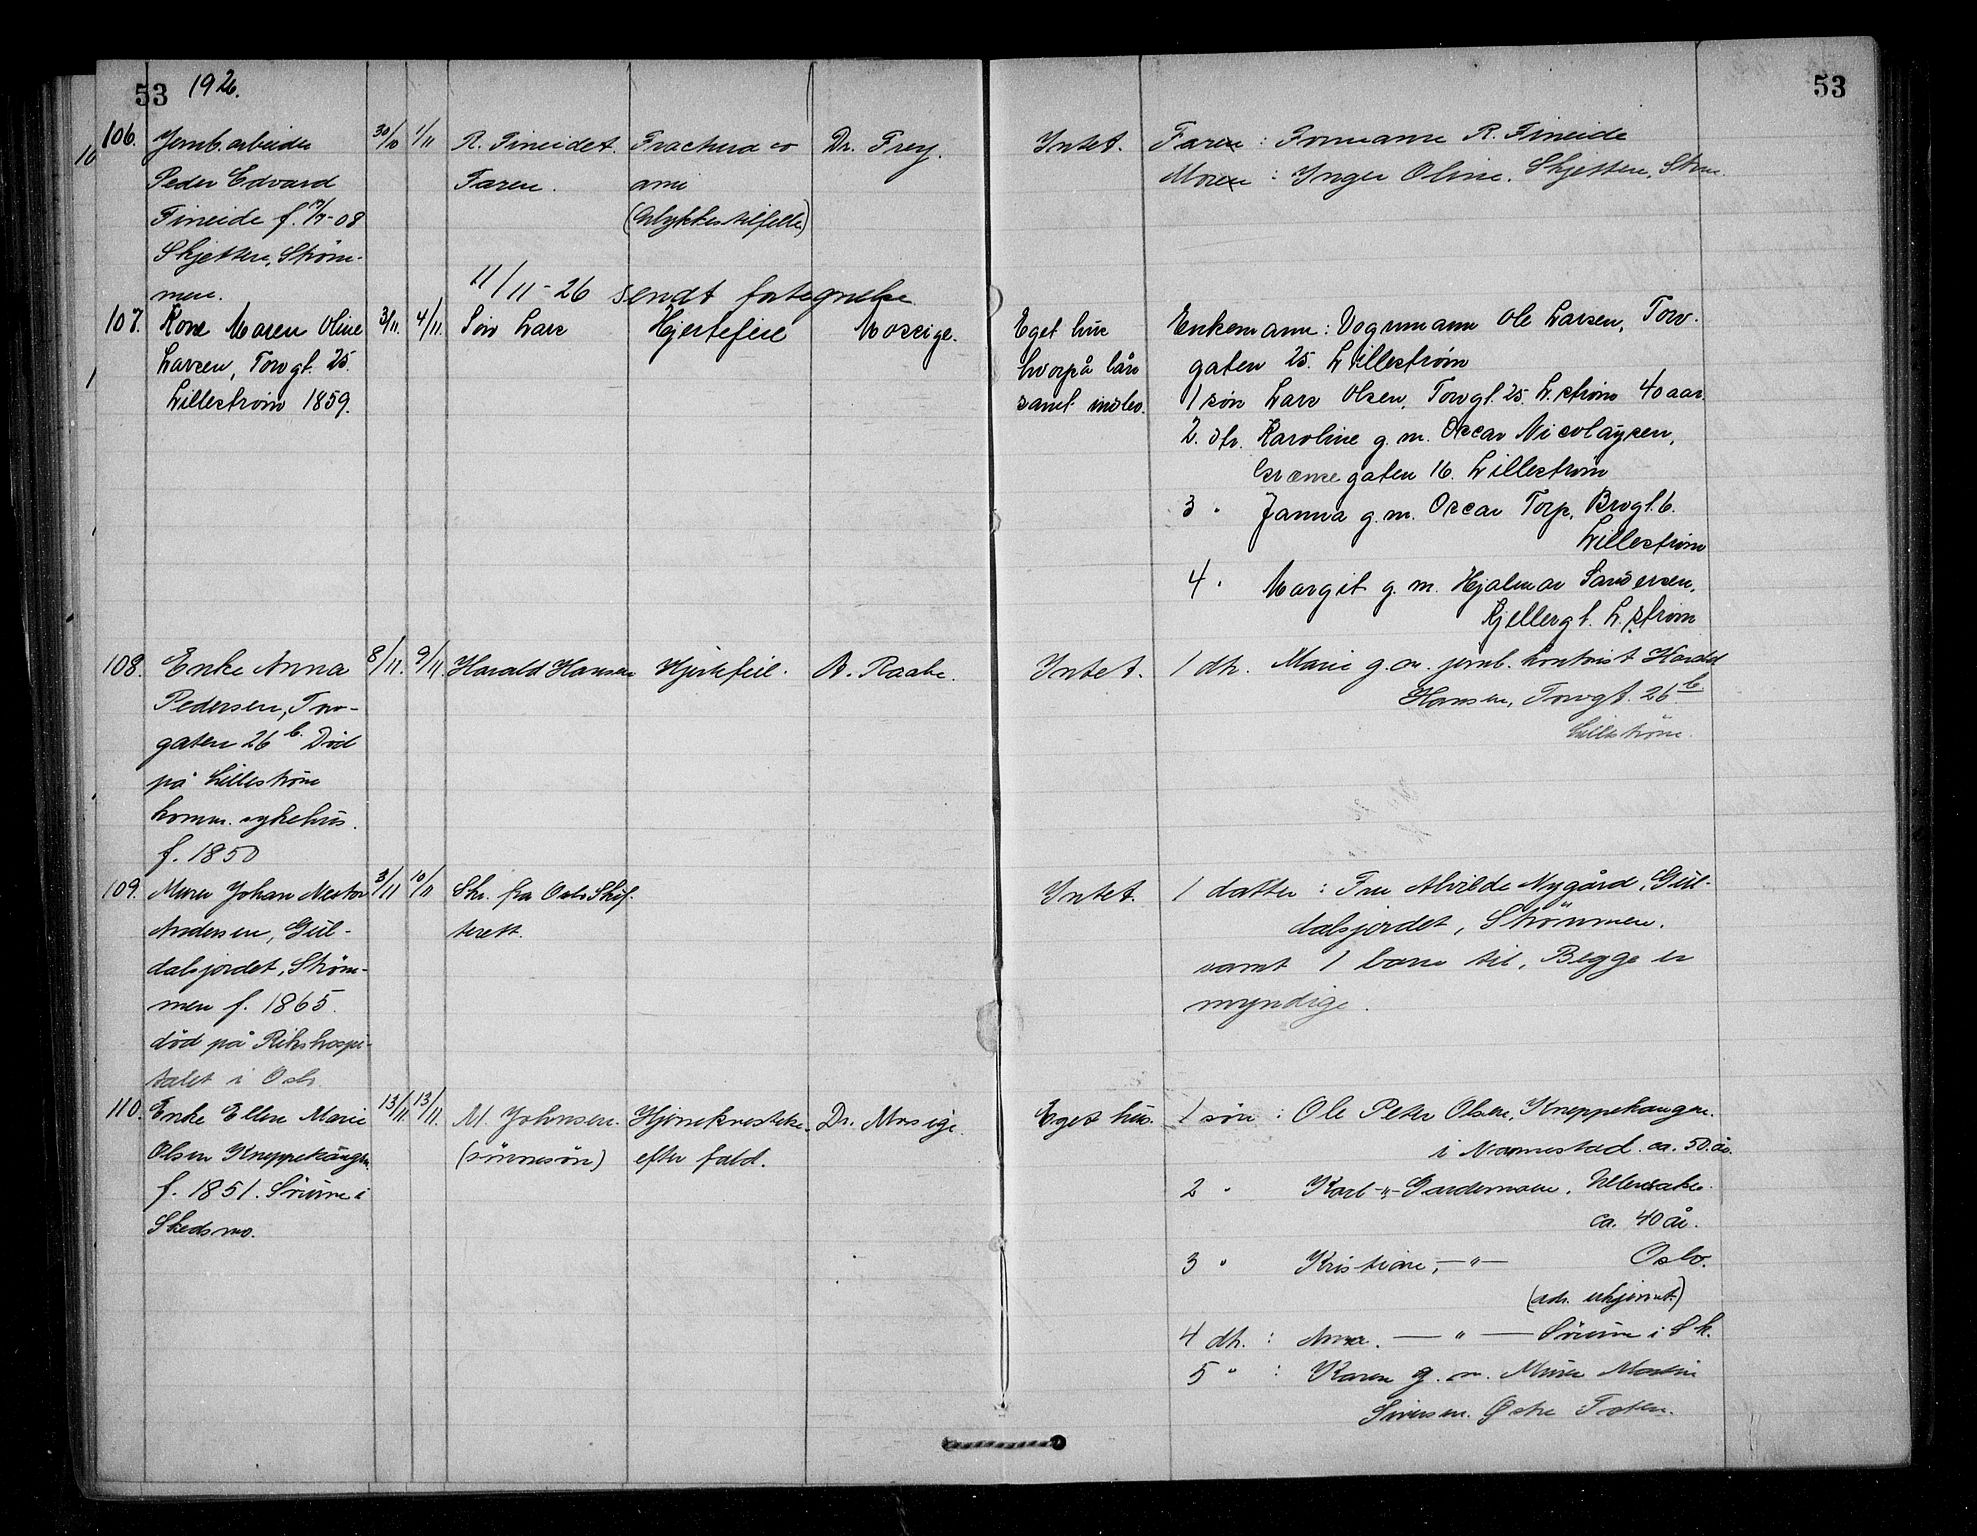 53 1926. 53
106. Jernb.arbeider 30/10 1/11 R. Fineidet. Fractura Dr. Frey. Intet. Faren : Formann R. Fineide
Peder Edvard Faren. Moren : Inger Oline. Skjetten, Strm.
Fineide f. -08 (Ulykkestilfelle)
Skjetten, Strøm-
men. 11/11-26 sendt fortegnelse
107. Kone Maren Oline 3/11. 4/11. Søn Lars Hjertefeil Mossige. Eget hus Enkemann: Vognmann Ole Larsen, Torv-
Larsen, Torvgt. 25. hvorpå lån gaten 25. Lillestrøm
Lillestrøm 1859. samt indbo. 1 søn Lars Olsen, Torvgt. 25. L.strøm 40 aar.
2. dtr. Karoline g. m. Oscar Nicolaysen,
Grænsegaten 16. Lillestrøm
3 " Janna g. m. Oscar Torp, Brogt. 6.
Lillestrøm
4 " Margit g. m. Hjalmar Sandersen,
Kjellergt. L.strøm
108. Enke Anna 8/11. 9/11. Harald Hansen Hjertefeil. A. Raabe. Intet. 1 dtr. Marie g. m. jernb. kontorist Harald
Pedersen, Torv- Hansen, Torvgt. 26 b
gaten 26 b. Død Lillestrøm.
på Lillestrøm
komm. sykehus.
f. 1850
109. Murer Johan Nestor 3/11 10/11 Skr. fra Oslo Skif- Intet. 1 datter : Fru Alvilde Nygård, Gul-
Andersen, Gul- terett. dalsjordet, Strømmen.
dalsjordet, Strøm- samt 1 barn til, Begge er
men f. 1865. myndige.
død på Rikshospi-
talet i Oslo
110. Enke Ellen Marie 13/11 13/11. M. Johnsen. Hjernekvestelse. Dr. Mossige. Eget hus. 1 søn : Ole Peter Olsen, Kneppehaugen.
Olsen Kneppehaugen (sønnesøn) efter fald. i Nannestad. ca. 50 år.
f. 1851. Sørum i 2 " Karl -"- Gardermoen, Ullensaker.
Skedsmo. ca. 40 år.
3 " Kristian, —"— Oslo.
(adr. ukjennt.)
4 dtr. : Anna. — " — Sørum i Sk.
5 " : Karen g. m. Murer Martin
Siversen. Østre Toten.